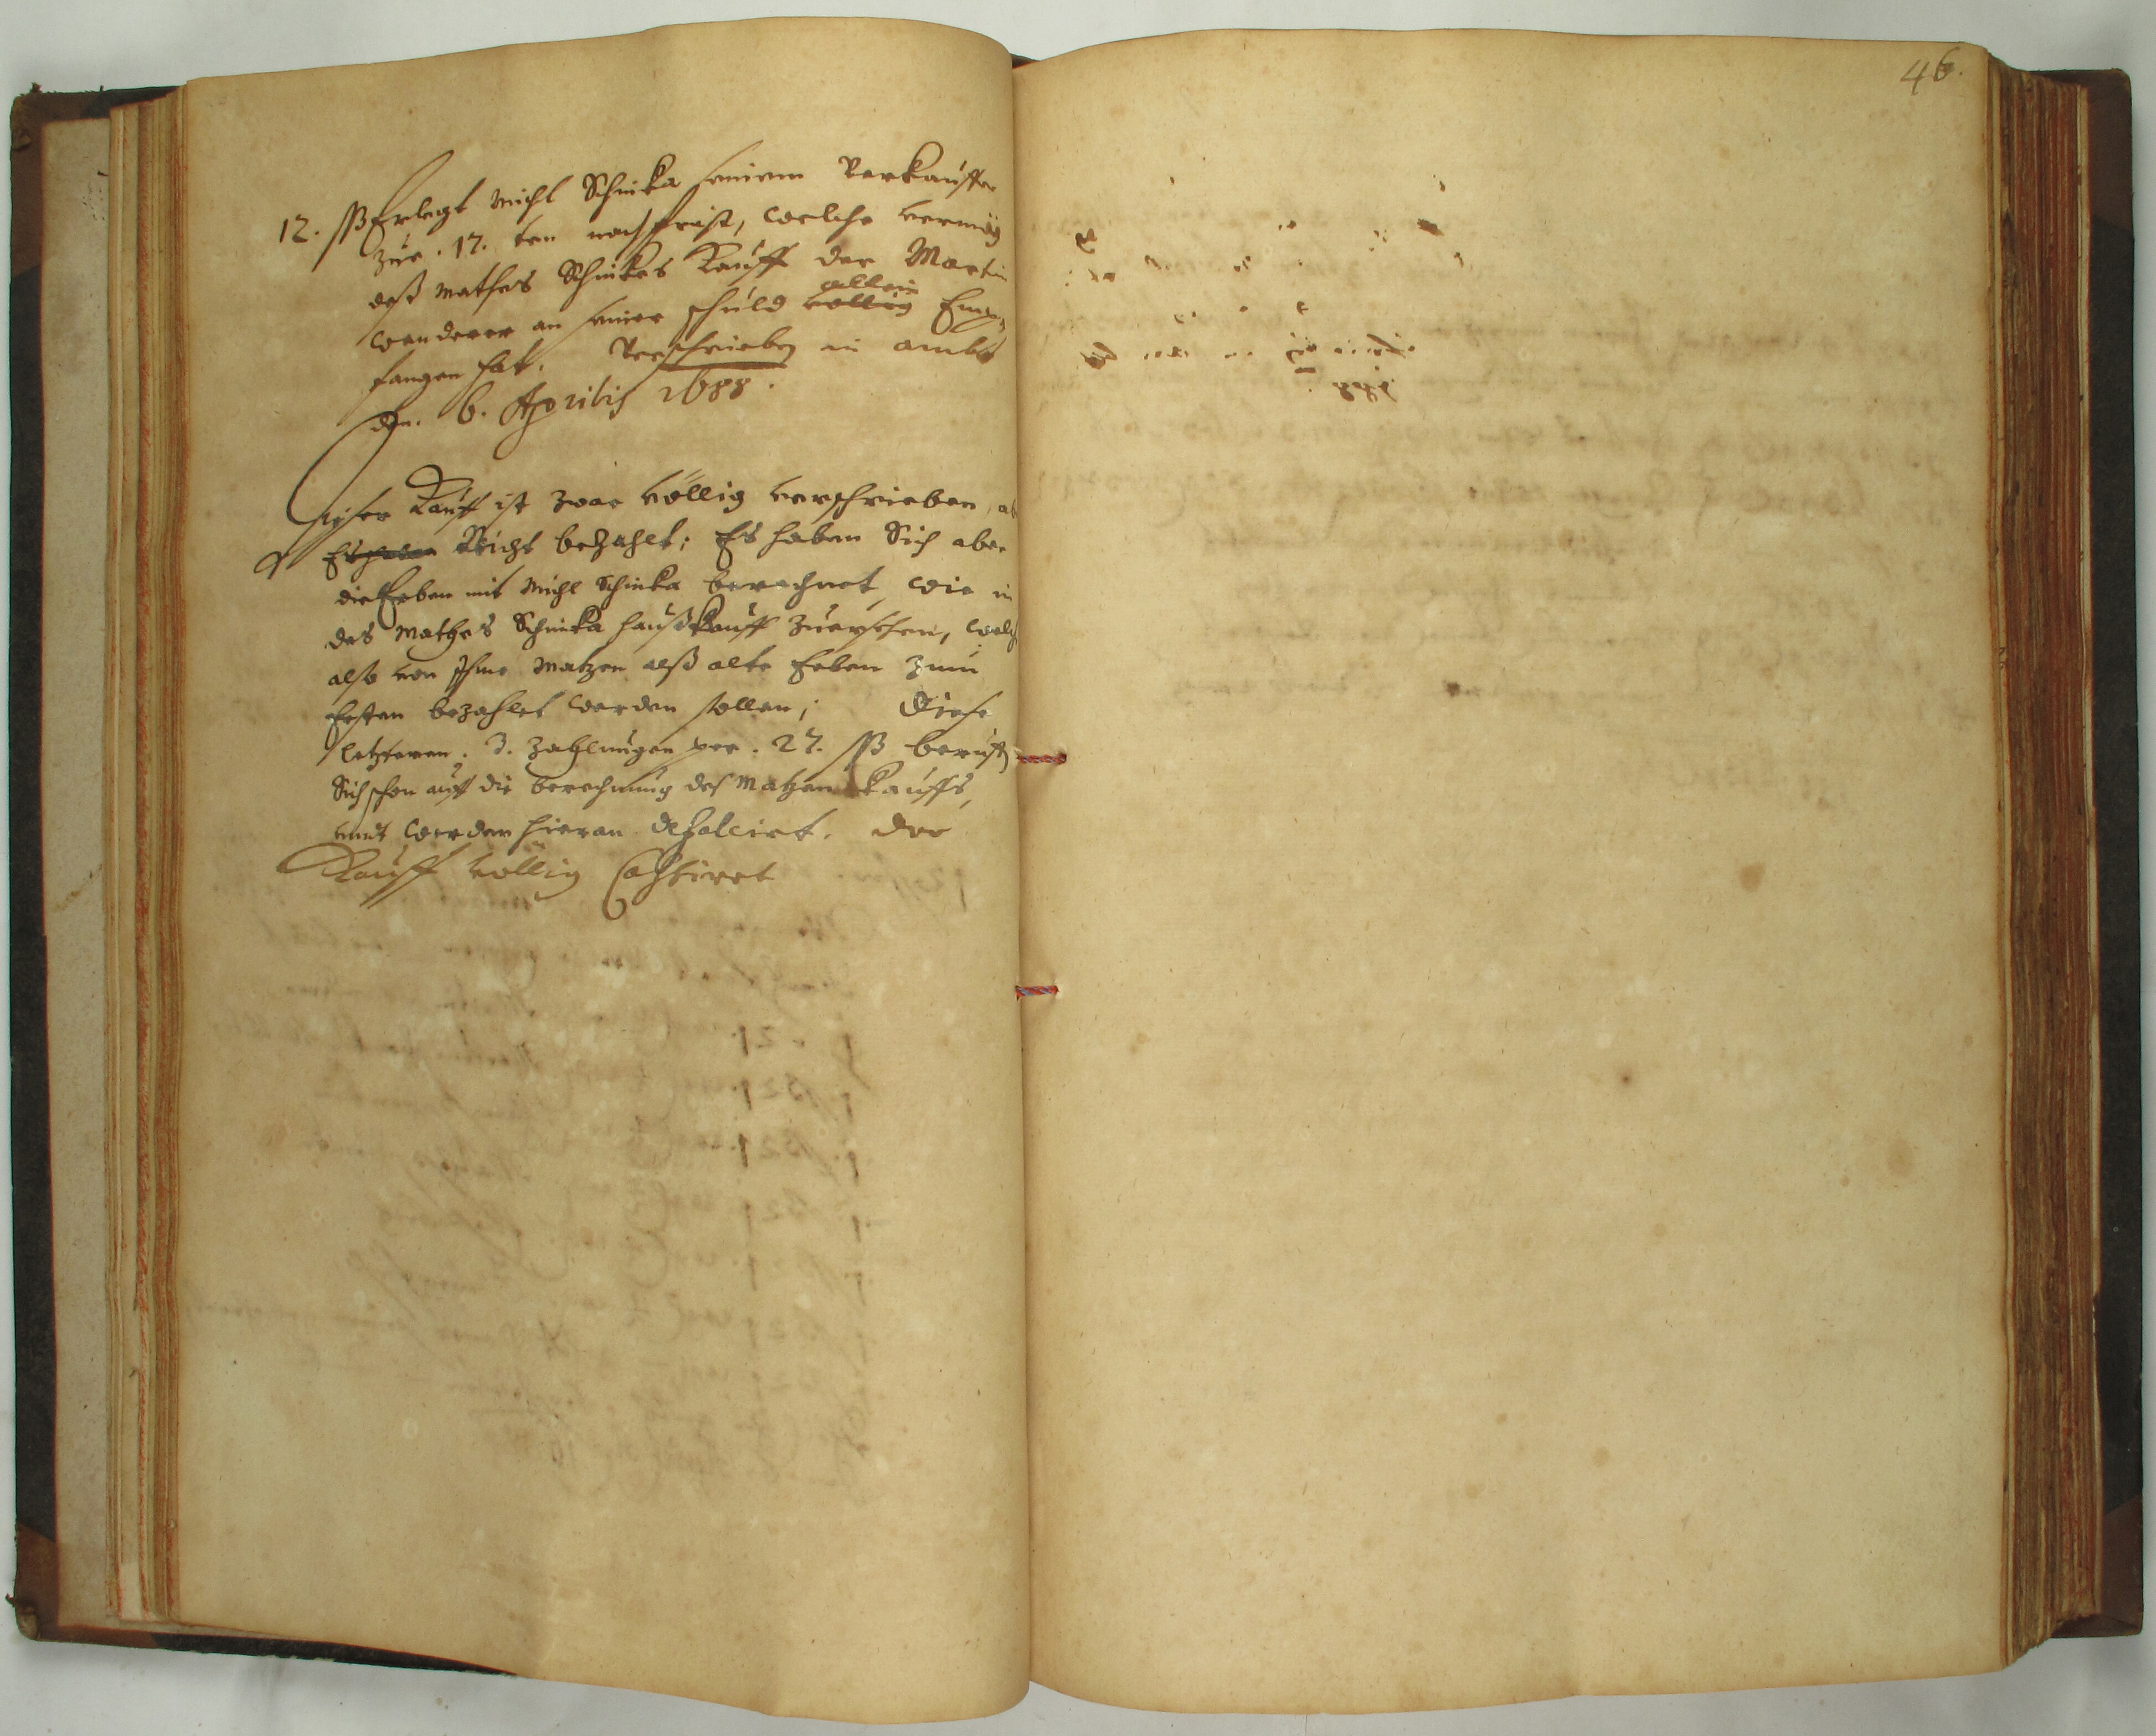 46.
12. ßß Erlegt Michl Schinka seinem Verkauffer
zur . 17. ten nachfrist, welche vermög
deß Mathes Schinkes Kauff der Martin
wanderer an seiner schuld völlig allein Emp,
fangen hat. Verschrieben in ambt
den. 6. Aprilis 1688.
Dieser Kauff ist zwar völlig verschrieben, ab
Nicht bezahlt; Es haben Sich aber
die Erben mit Michl Schinka berechnet, wie in
des Mathes Schinka haußkauff zuersehen, welch
also von Ihme Matzen alß alte Erben zum
Ersten bezahlet werden sollen; Diese
letzteren . 3. Zahlungen per . 27. ßß beruft
Sich schon auff die berechnung des Matzen kauffs,
unnd werden hieran defalcirt. der
Kauff völlig Cassiret